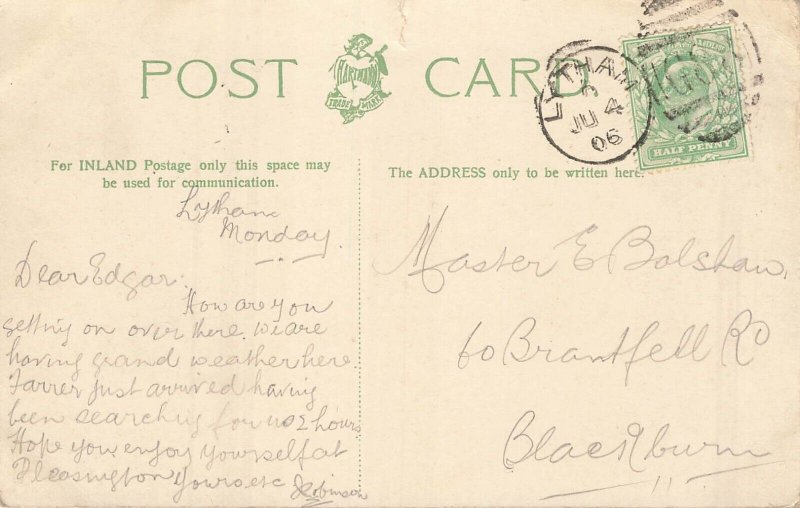 POST CARD
HARTMANN
TRADE MARK
LYTHAM
JU 4
06
HALF PENNY
For INLAND Postage only this space may
be used for communication.
The ADDRESS only to be written here.
Lytham
Monday.
Dear Edgar.
How are you
getting on over there. We are
having grand weather here.
Farrer just arrived having
been searching for us 2 hours
Hope you enjoy yourself at
Pleasington Yours etc J Robinson
Master E Bolshaw.
60 Brantfell Rd
Blackburn